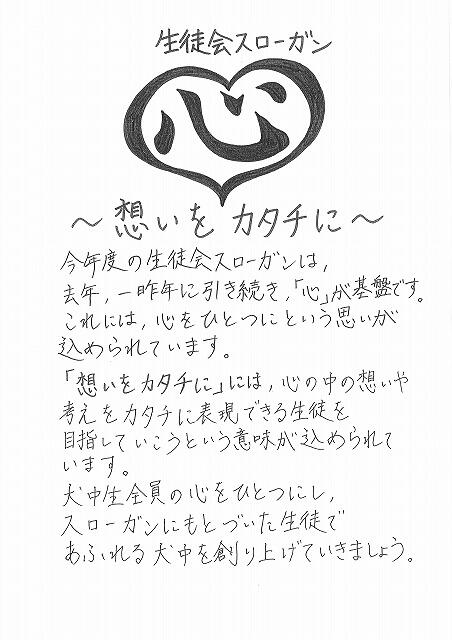 生徒会スローガン
心
～想いをカタチに～
今年度の生徒会スローガンは,
去年,一昨年に引き続き,「心」が基盤です。
これには,心をひとつにという思いが
込められています。
「想いをカタチに」には,心の中の想いや
考えをカタチに表現できる生徒を
目指していこうという意味が込められて
います。
犬中生全員の心をひとつにし,
スローガンにもとづいた生徒で
あふれる犬中を創り上げていきましょう。